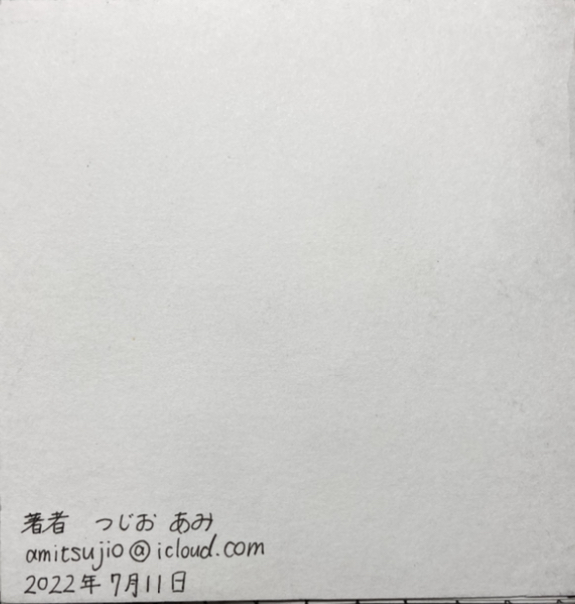 著者 つじお あみ
amitsujio@icloud.com
2022年7月11日